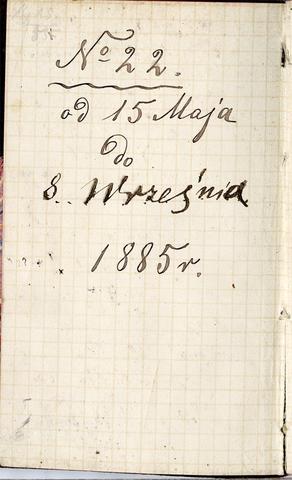 No 22.
od 15 Maja
do
8.. Września
1885 r.